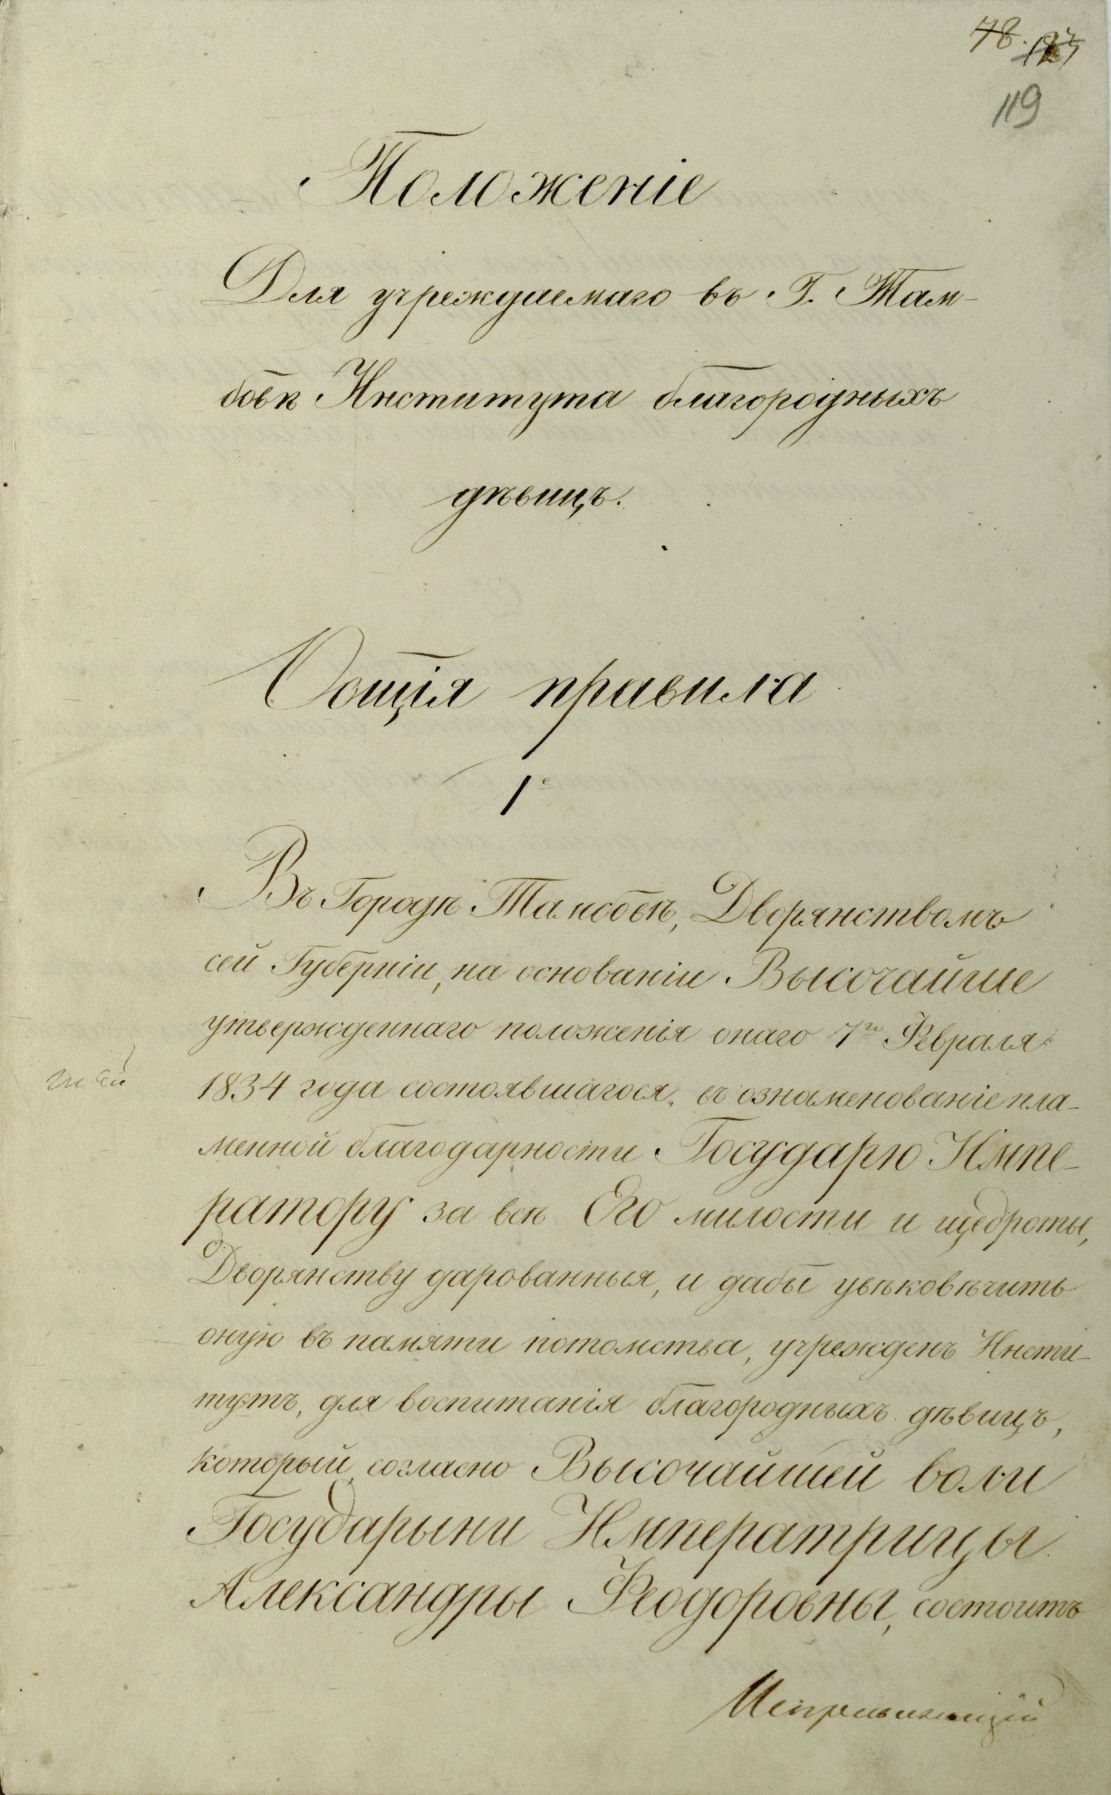 78.
119
Положеніе
Для учреждаемаго въ Г. Там-
бовѣ Института благородныхъ
дѣвицъ.
Общія правила
1е
Въ Городѣ Тамбовѣ, Дворянствомъ
сей Губерніи, на основаніи Высочайше
утвержденнаго положенія онаго 7го Февраля
1834 года состоявшагося, въ ознаменованіе пла-
менной благодарности Государю Импе-
ратору за всѣ Его милости и щедроты,
Дворянству дарованныя, и дабы увѣковѣчить
оную въ памяти потомства, учрежденъ Инсти-
тутъ, для воспитанія благородныхъ дѣвицъ,
который, согласно Высочайшей воли
Государыни Императрицы
Александры Феодоровны, состоитъ